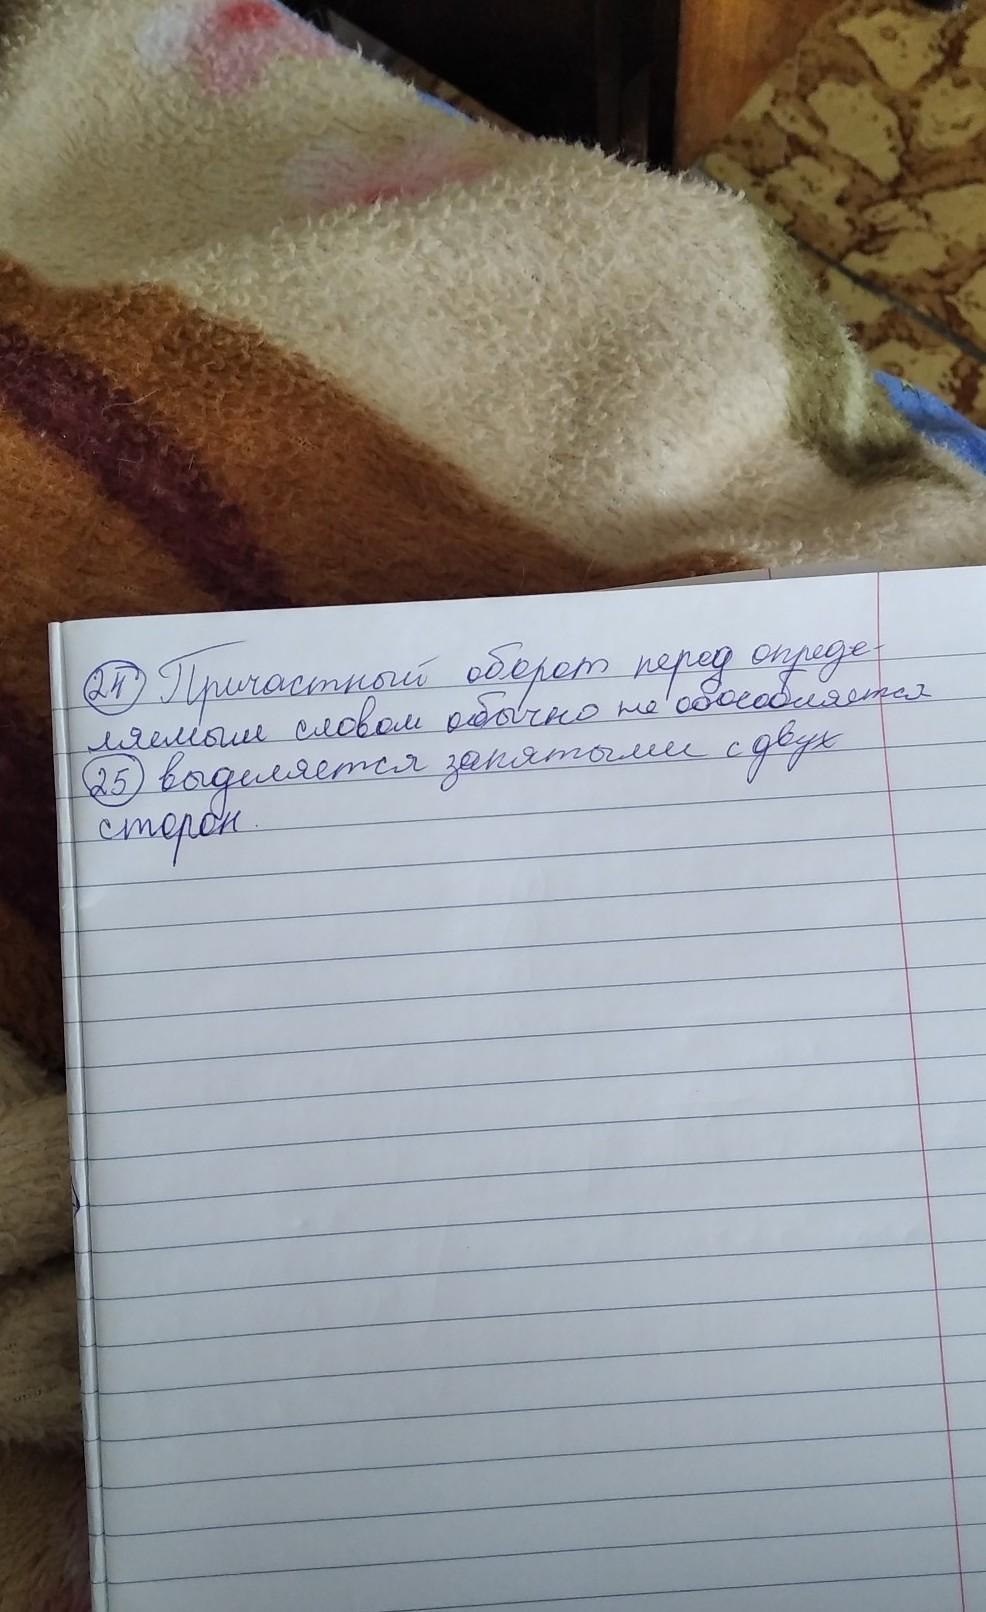 24 Причастный оборот перед опреде-
ляемым словом обычно не обособляется
25 выделяется запятыми с двух
сторон.